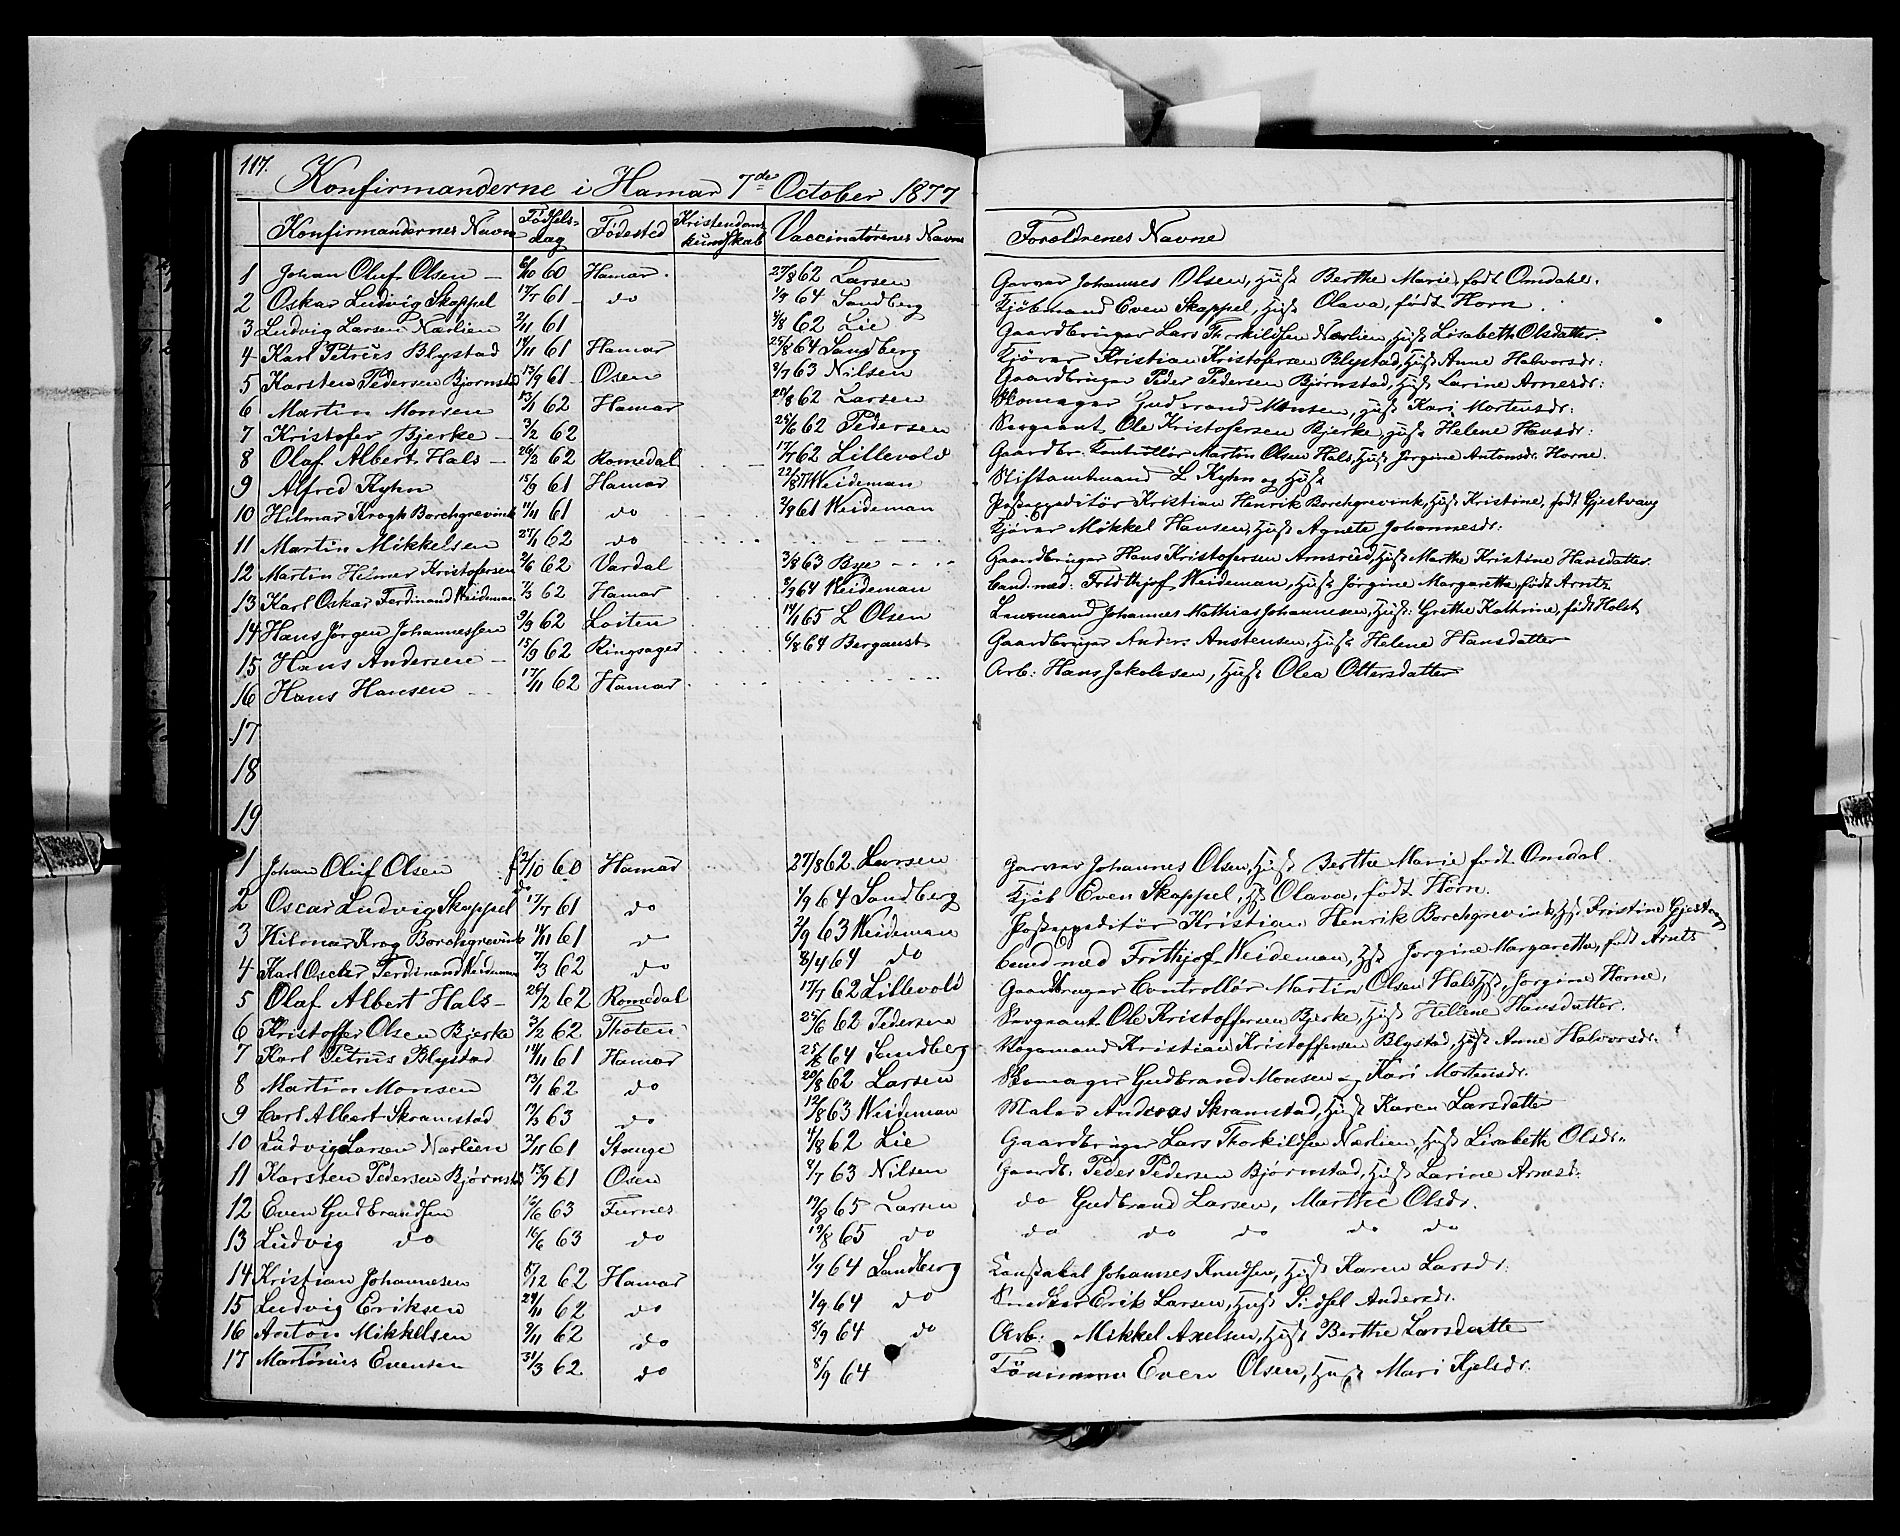 117.
Konfirmanderne i Hamar 7de October 1877
Konfirmandernes Navne Fødsels-dag Fødested Kristendoms kundskab Vaccinatørenes Navne Forældrenes Navne
1 Johan Oluf Olsen — 6/10 60 Hamar. 27/8 62 Larsen Garver Johannes Olsen, Hust Berthe Marie født Omdahl.
2 Oskar Ludvig Skappel 17/7 61 do 1/9 64 Sandberg Kjøbmand Even Skappel, Hust Olava, født Horn
3 Ludvig Larsen Nærlien 2/11 61 4/8 62 Lie Gaardbruger Lars Thorkildsen Nærlien Hust Lisabeth Olsdatter.
4 Karl Petrus Blystad 14/11 61 Hamar 25/8 64 Sandberg Kjører Kristian Kristofersen Blystad, Hust Anne Halvorsdr:
5 Karsten Pedersen Bjørnstad 13/9 61 Osen 2/7 63 Nilsen Gaardbruger Peder Pedersen Bjørnstad, Hust Larine Arnesdr:
6 Martin Monsen 13/1 62 Hamar 28/8 62 Larsen Skomager Gudbrand Monsen, Hust Kari Mortensdr:
7 Kristofer Bjerke — 3/2 62 25/6 62 Pedersen Sergeant Ole Kristofersen Bjerke, Hust Helene Hansdr:
8 Olaf Albert Hals — 26/2 62 Romedal 17/7 62 Lillevold Gaardbr. Kontrollør Martin Olsen Hals, Hust Jørgine Antonsdr. Horne.
9 Alfred Kyhn 15/9 61 Hamar Weideman Stiftamtmand L Kyhn og Hust
10 Hilmar Krogh Borchgrevink 11/11 61 do 2/9 61 Weideman Postexpeditør Kristian Henrik Borchgrevink, Hust Kristine, født Gjestvang
11 Martin Mikkelsen 27/1 62 do Kjører Mikkel Hansen, Hust Agnete Johannesdr:
12 Martin Helmer Kristofersen 2/6 62 Vardal 3/8 63 Bye Gaardbruger Hans Kristofersen Amsrud, Hust Marthe Kristine Hansdatter.
13 Karl Oskar Ferdinand Weideman 7/3 62 Hamar 8/9 64 Weideman Cand. med: Fridthjof Weideman, Hust Jørgine Margarethe, født Arntz
14 Hans Jørgen Johannessen 9/9 62 Løiten 14/1 65 L Olsen Lensmand Johannes Mathias Johannesen, Hust: Grethe Kathrine, født Holst
15 Hans Andersen — 15/9 62 Ringsager 6/8 64 Bergaust Gaardbruger Anders Anstensen, Hust Helene Hansdatter
16 Hans Hansen 17/11 62 Hamar Arb: Hans Jakobsen, Hust Olea Ottersdatter
17
18
19
1 Johan Oluf Olsen 2/10 60 Hamar 27/8 62 Larsen Garver Johannes Olsen, Hust Berthe Marie født Omdal.
2 Oscar Ludvig Skappel 17/7 61 do 1/9 64 Sandberg Kjøb Even Skappel, Hst Olava, født Horn.
3 Hilmar Krog Borchgrevink 11/11 61 do 2/9 63 Weideman Postexpeditør Kristian Henrik Borchgrevink, Hst Kristine Gjestvang
4 Karl Oscar Ferdinand Weideman 7/3 62 do 8/9 64 do Cand med Frithjof Weideman, Hst Jørgine Margarethe, født Arntz
5 Olaf Albert Hals — 26/2 62 Romedal 17/7 62 Lillevold Gaardbruger Controllør Martin Olsen Hals, Hst, Jørgine Horne,
6 Kristoffer Olsen Bjerke 3/2 62 Thoten 25/6 62 Pedersen Sergeant Ole Kristoffersen Bjerke, Hust Hellene Hansdatter.
7 Karl Petrus Blystad 14/11 61 Hamar 25/8 64 Sandberg Vogemand Kristian Kristoffersen Blystad, Hust Anne Halvorsdr.
8 Martin Monsen 13/1 62 do 20/8 62 Larsen Skomager Gudbrand Monsen og Kari Mortensdr.
9 Carl Albert Skramstad 19/3 63 do 12/8 63 Weideman Maler Andreas Skramstad, Hust Karen Larsdatter
10 Ludvig Larsen Nærlien 2/11 61 Stange 4/8 62 Lie Gaardbruger Lars Thorkildsen Nærlien, Hust Lisabeth Olsdr.
11 Karsten Pedersen Bjørnstad 13/9 61 Osen 2/7 63 Nilsen Gaardb. Peder Pedersen Bjørnstad, Hust Larine Arnesdr.
12 Even Gudbrandsen 16/6 63 Furnes 19/8 65 Larsen do Gudbrand Larsen, Marthe Olsdr.
13 Ludvig do 16/6 63 do 19/8 65 do do do do do do
14 Kristian Johannesen 8/12 62 Hamar 1/9 64 Sandberg Konstabel Johannes Knudsen, Hust Karen Larsdr:
15 Ludvig Eriksen 29/11 62 do 1/9 64 do Snedker Erik Larsen, Hust Sidsel Andersdr.
16 Anton Mikkelsen 9/11 62 do 8/9 64 do Arb: Mikkel Axelsen, Hust Berthe Larsdatter
17 Martinius Evensen 31/3 62 do 8/9 64 Even Olsen, Hust Mari Kjelsdr.